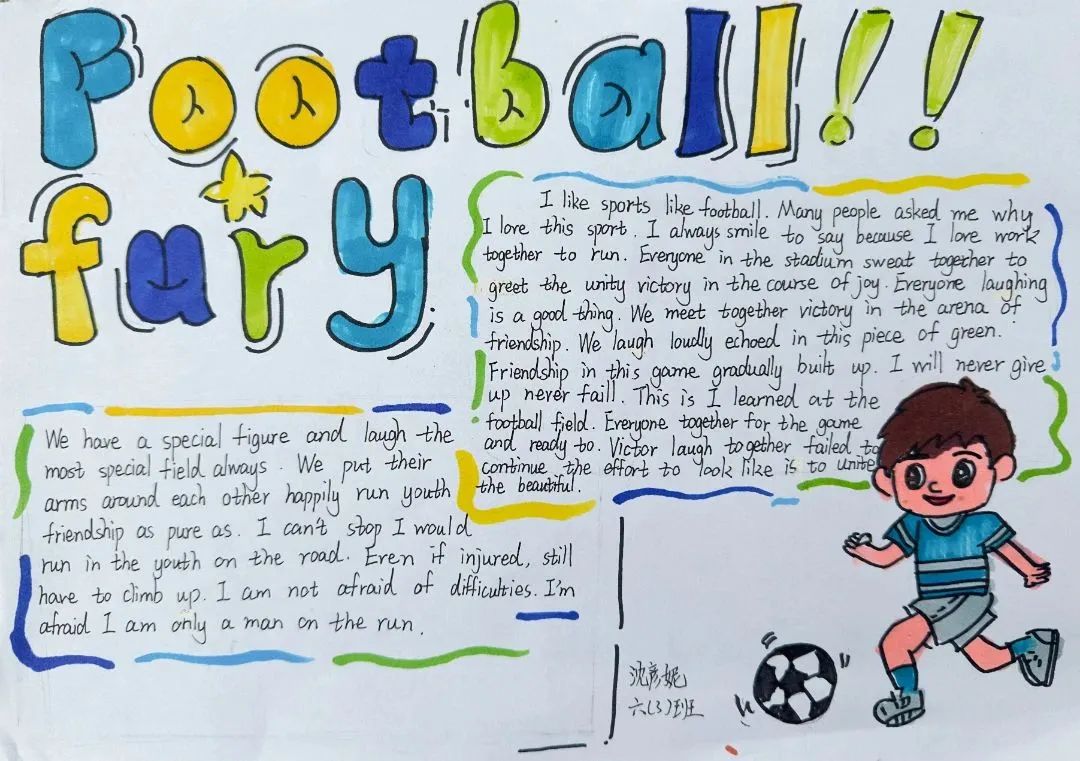 Football!!
fury
I like sports like football. Many people asked me why
I love this sport. I always smile to say because I love work
together to run. Everyone in the stadium sweat together to
greet the unity victory in the course of joy. Everyone laughing
is a good thing. We meet together victory in the arena of
friendship. We laugh loudly echoed in this piece of green.
Friendship in this game gradually built up. I will never give
up never faill. This is I learned at the
football field. Everyone together for the game
and ready to. Victor laugh together failed to
continue the effort to look like is to unite
the beautiful.
We have a special figure and laugh the
most special field always. We put their
arms around each other happily run youth
friendship as pure as. I can't stop I would
run in the youth on the road. Even if injured, still
have to climb up. I am not afraid of difficulties. I'm
afraid I am only a man on the run.
沈彦妮
六(3)班